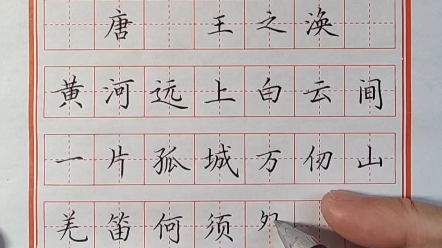 唐 王之涣
黄河远上白云间
一片孤城万仞山
羌笛何须